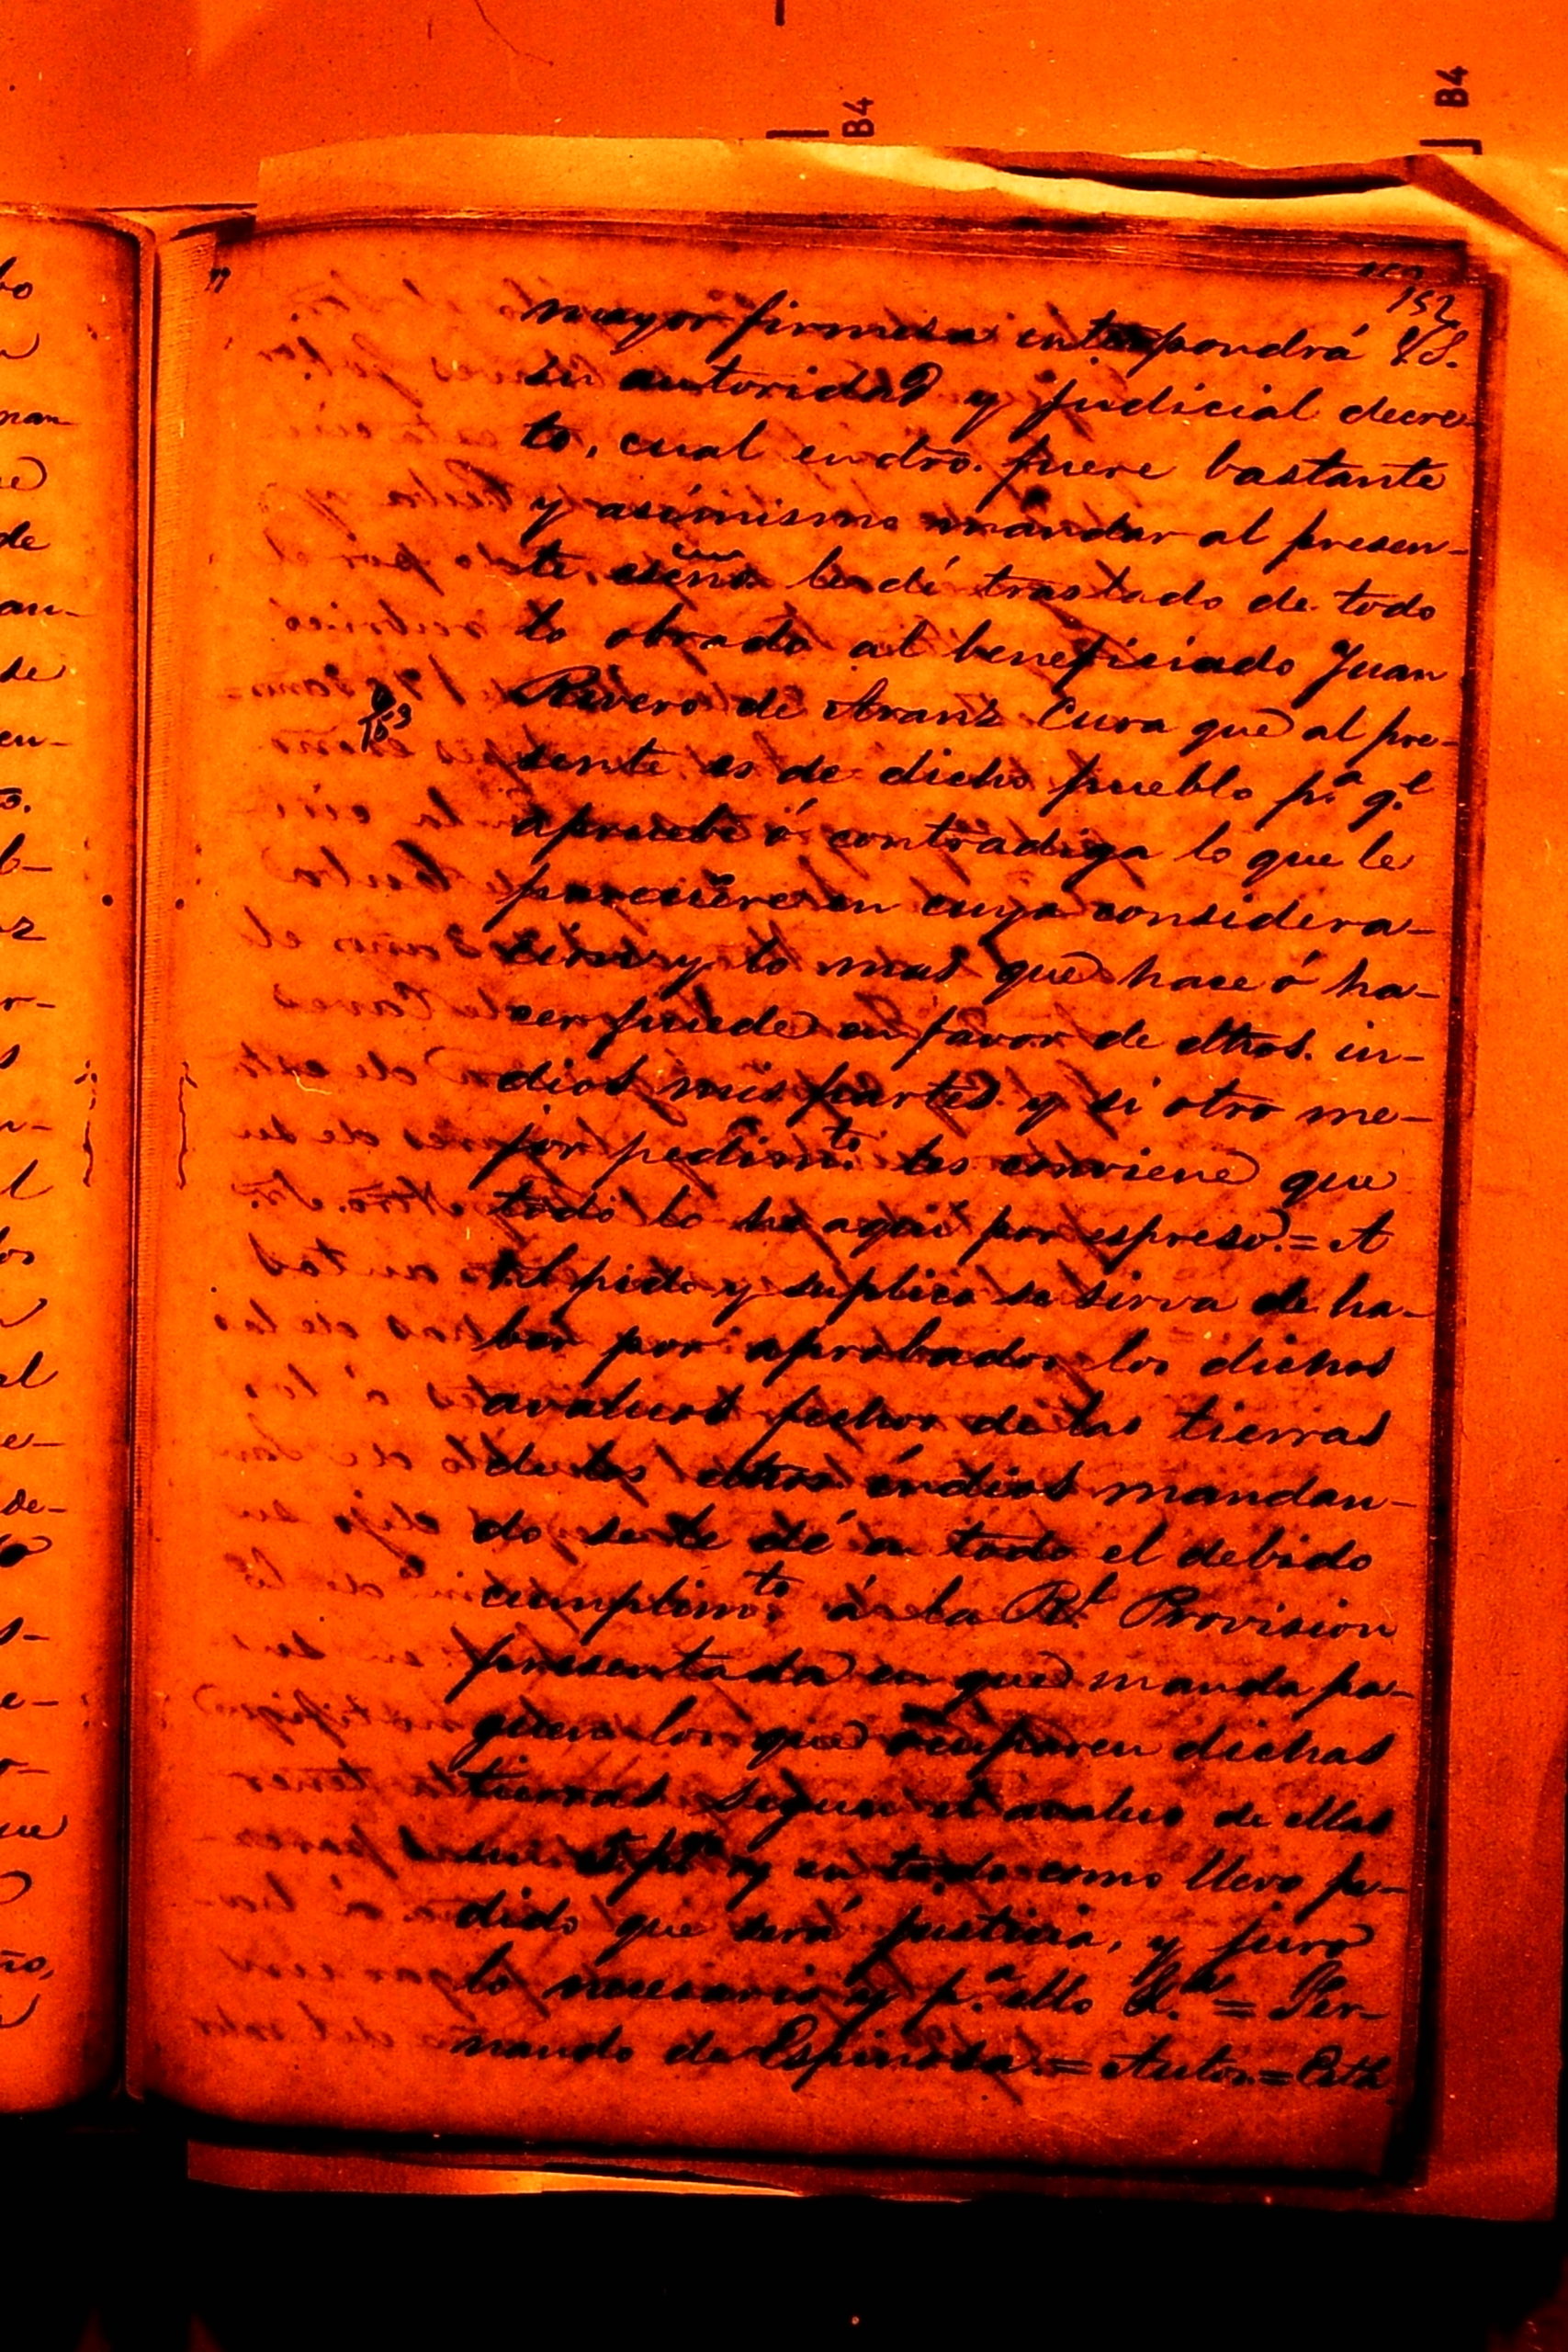 B4
B4
152
mayor firmesa interpondrá VS.
su autoridad y judicial decre-
to, cual en dro. fuere bastante
y asimismo mandar al presen-
te le dé traslado de todo
lo obrado al beneficiado Juan
Rivero de Aranz Cura que al pre-
153
sente es de dicho pueblo pa. qe. l
apruebe ó contradiga lo que le
pareciere en cuya considera-
cion y lo mas que hace ó ha-
cer puede en favor de dhos. in-
dios mis partes y si otro me-
jor pedimto. les conviene que
todo lo he aqui por espreso.= A
VS. pido y suplico se sirva de ha-
ber por aprobados los dichos
avaluos fechos de las tierras
de los indios mandan-
do se le dé en todo el debido
cumplimto. á la Rl. Provision
presentada en que manda pa-
guen los que ocuparen dichas
tierras segun el avaluo de ellas
y en todo como llevo pe-
dido que será justicia, y juro
lo necesario y pa. ello &a. = Fer-
nando de Espinosa.= Autor.=